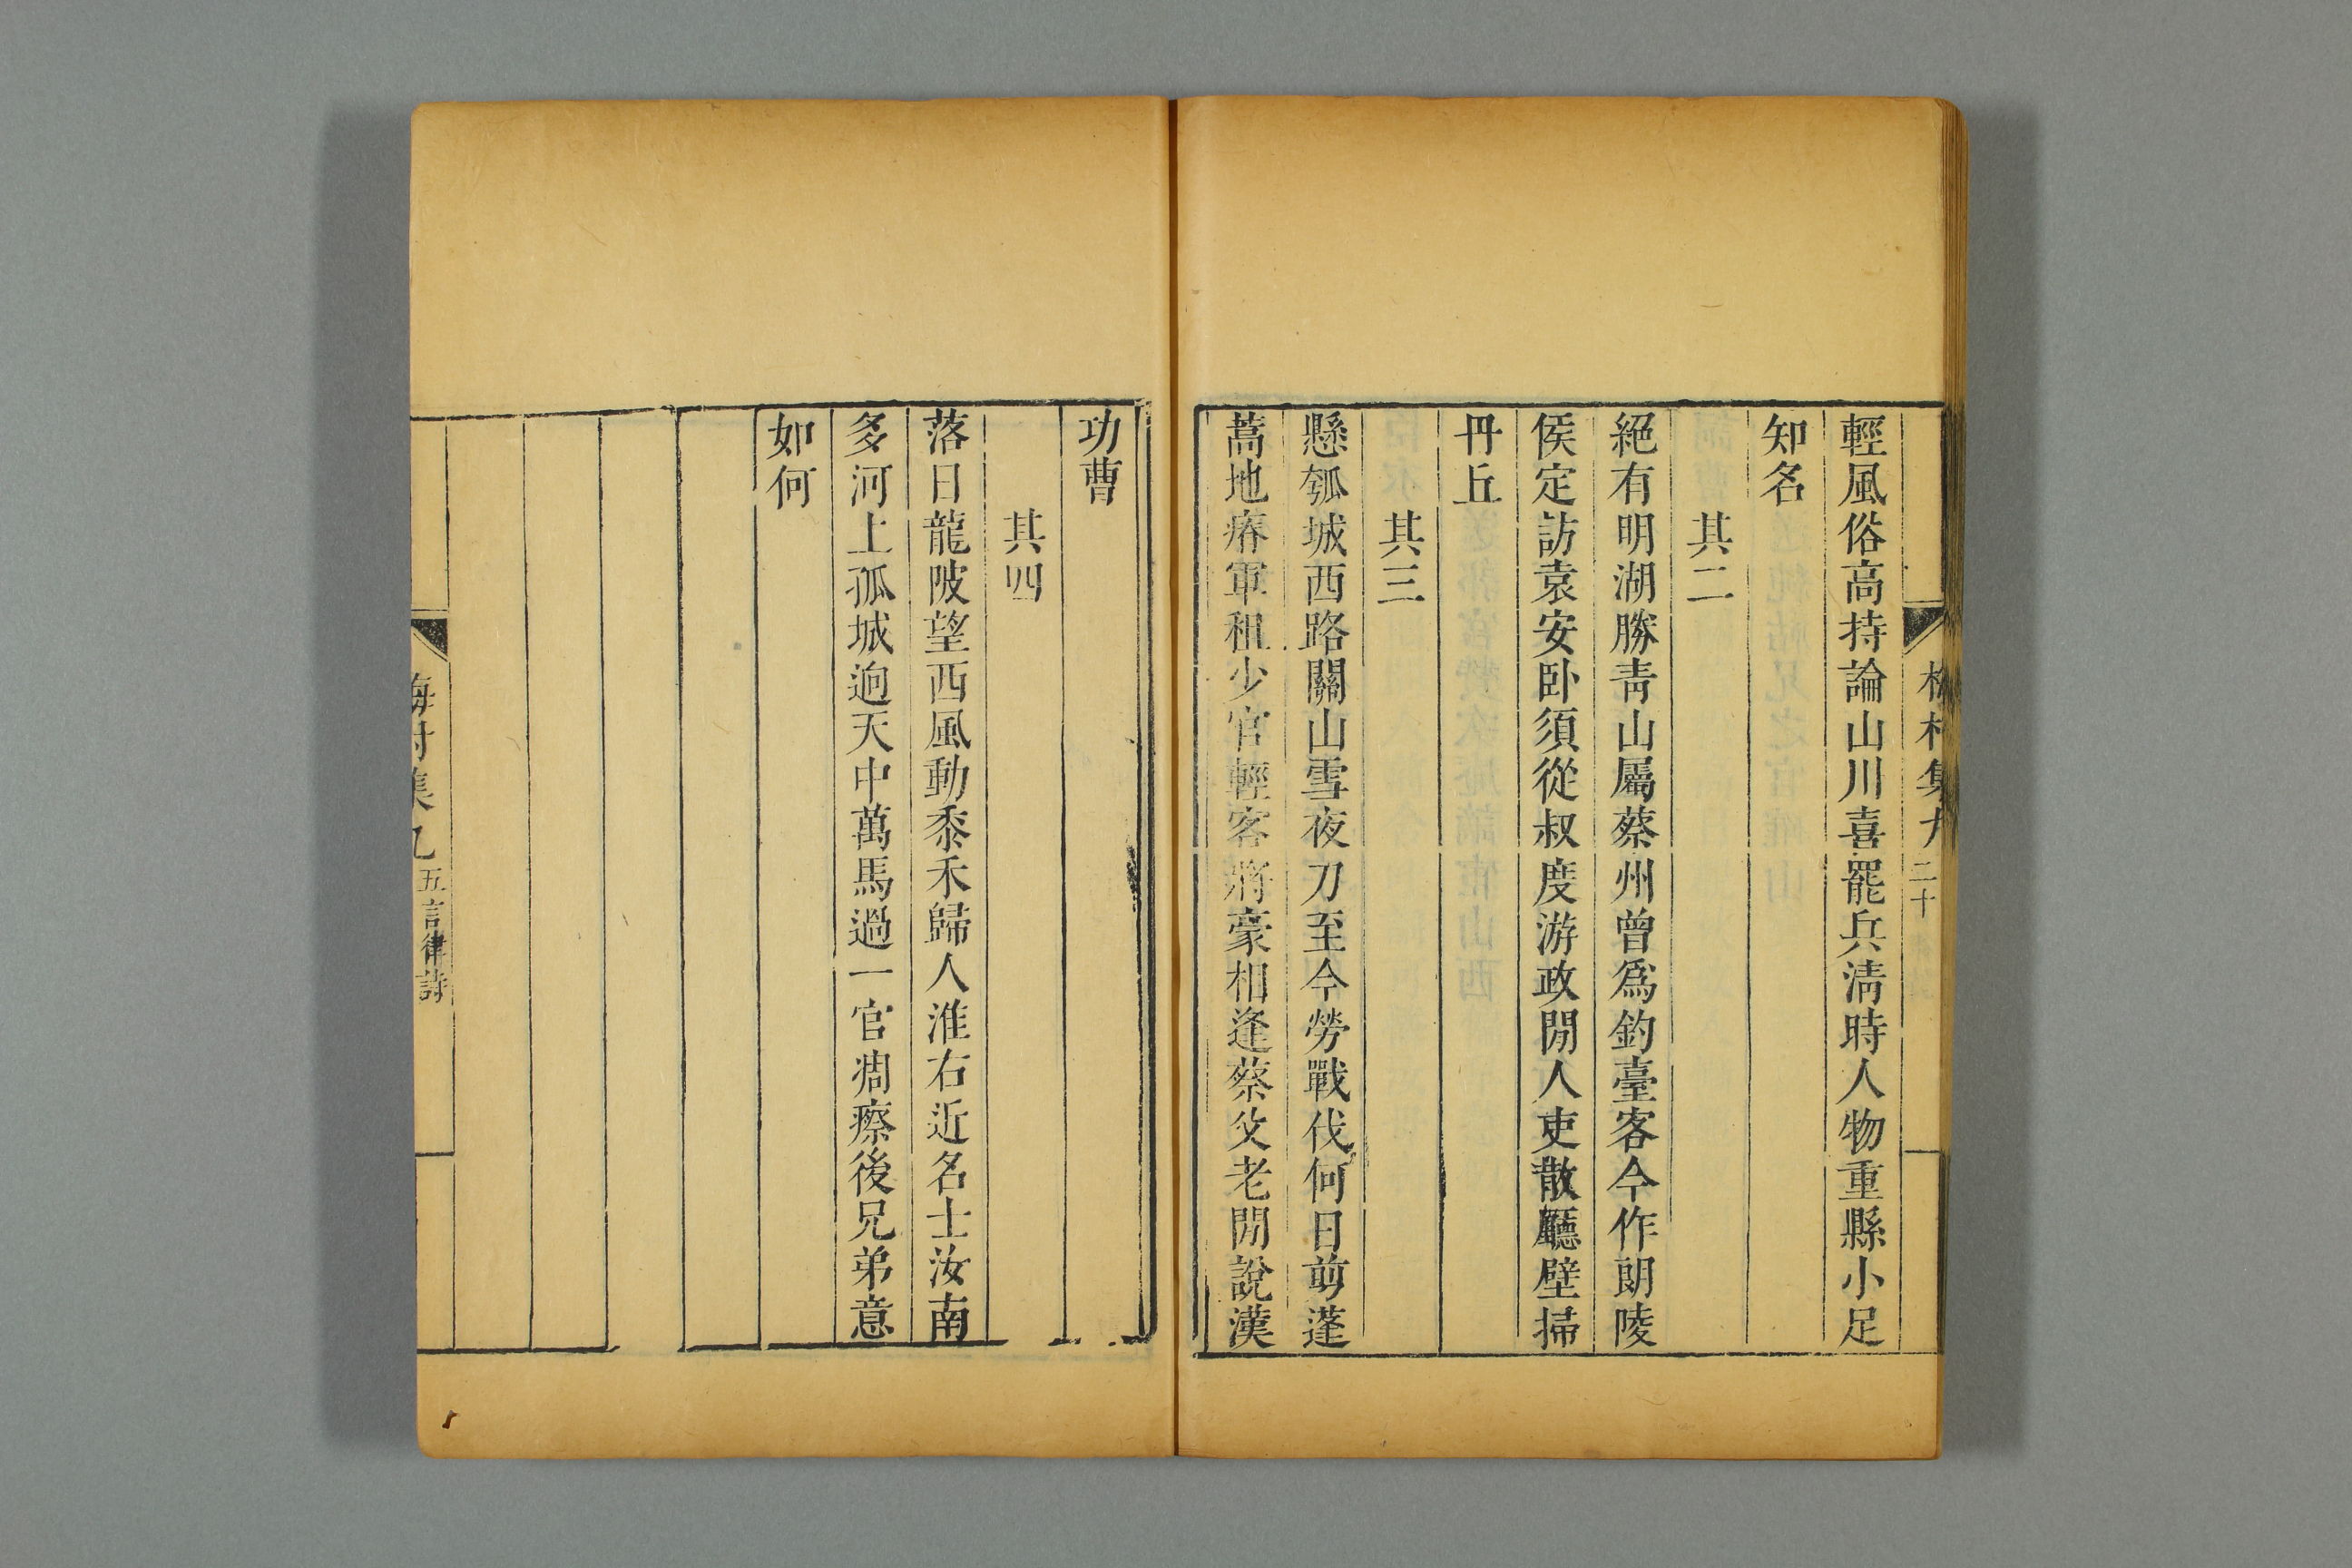 輕風俗高持論山川喜罷兵淸時人物重縣小足
知名
其二
絕有明湖勝靑山屬蔡州曾爲釣臺客今作朗陵
侯定訪袁安卧須從叔度游政閒人吏散廳壁掃
丹丘
其三
懸瓠城西路關山雪夜刀至今勞戰伐何日剪蓬
蒿地瘠軍租少官輕客將豪相逢蔡父老閒說漢
功曹
其四
落日龍陂望西風動黍禾歸人淮右近名士汝南
多河上孤城迥天中萬馬過一官凋瘵後兄弟意
如何
村集九 二十
梅村集九 五言律詩